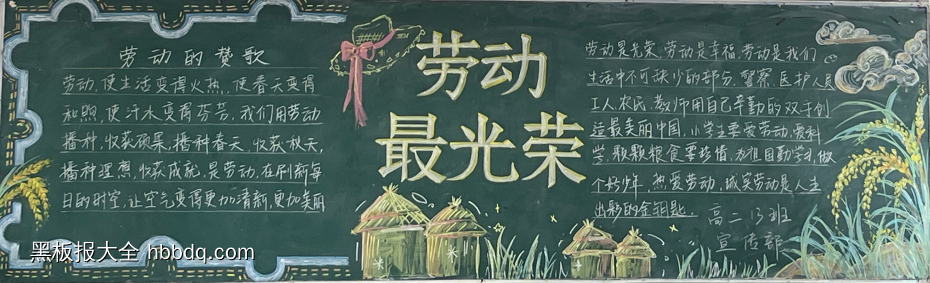 劳动的赞歌
劳动,使生活变得火热,使春天变得
和煦,使汗水变得芬芳,我们用劳动
播种,收获硕果,播种春天,收获秋天,
播种理想,收获成就,是劳动,在刷新每
日的时空,让空气变得更加清新,更加美丽
劳动
最光荣
劳动是光荣,劳动是幸福,劳动是我们
生活中不可缺少的部分,警察,医护人员
工人农民,教师用自己辛勤的双手创
造最美丽中国,小学生要爱劳动,爱科
学,颗颗粮食要珍惜,为祖国勤学习,做
个好少年,热爱劳动,诚实劳动是人生
出彩的金钥匙.
高二13班
宣传部
黑板报大全 hbbdq.com